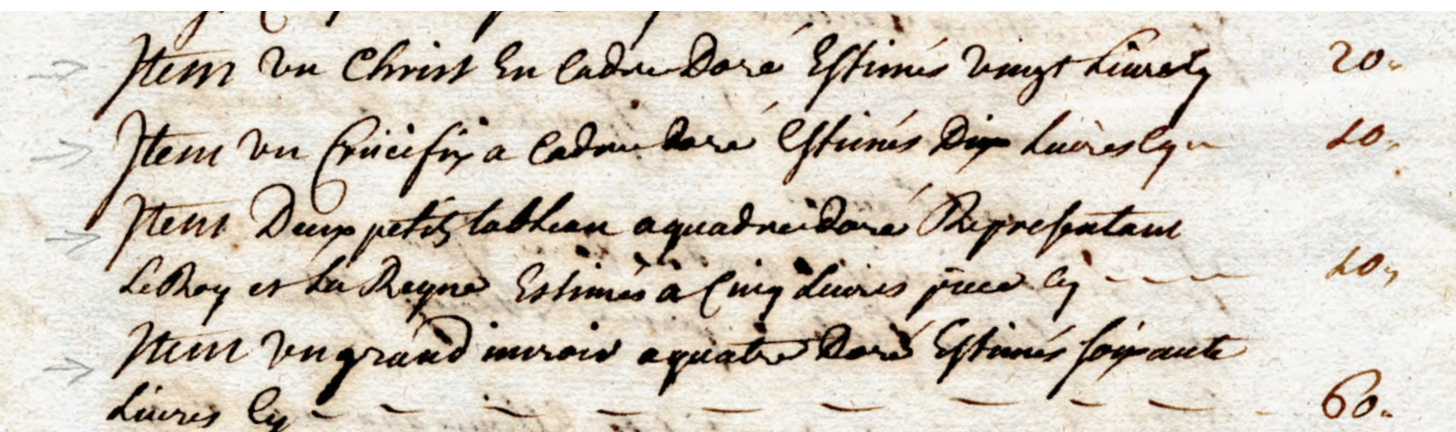 Item un Christ En Cadre Doré Estimés vingt Livres Cy 20.
Item un Crucifix a Cadre doré Estimés Dix Livres Cy 10.
Item Deux petits tableau a quadre doré Representant
Le Roy et La Reyne Estimés a Cinq Livres piece Cy - - - 10.
Item un grand miroir a quatre Doré Estimés soixante
Livres Cy - - - - - - - - - 60.